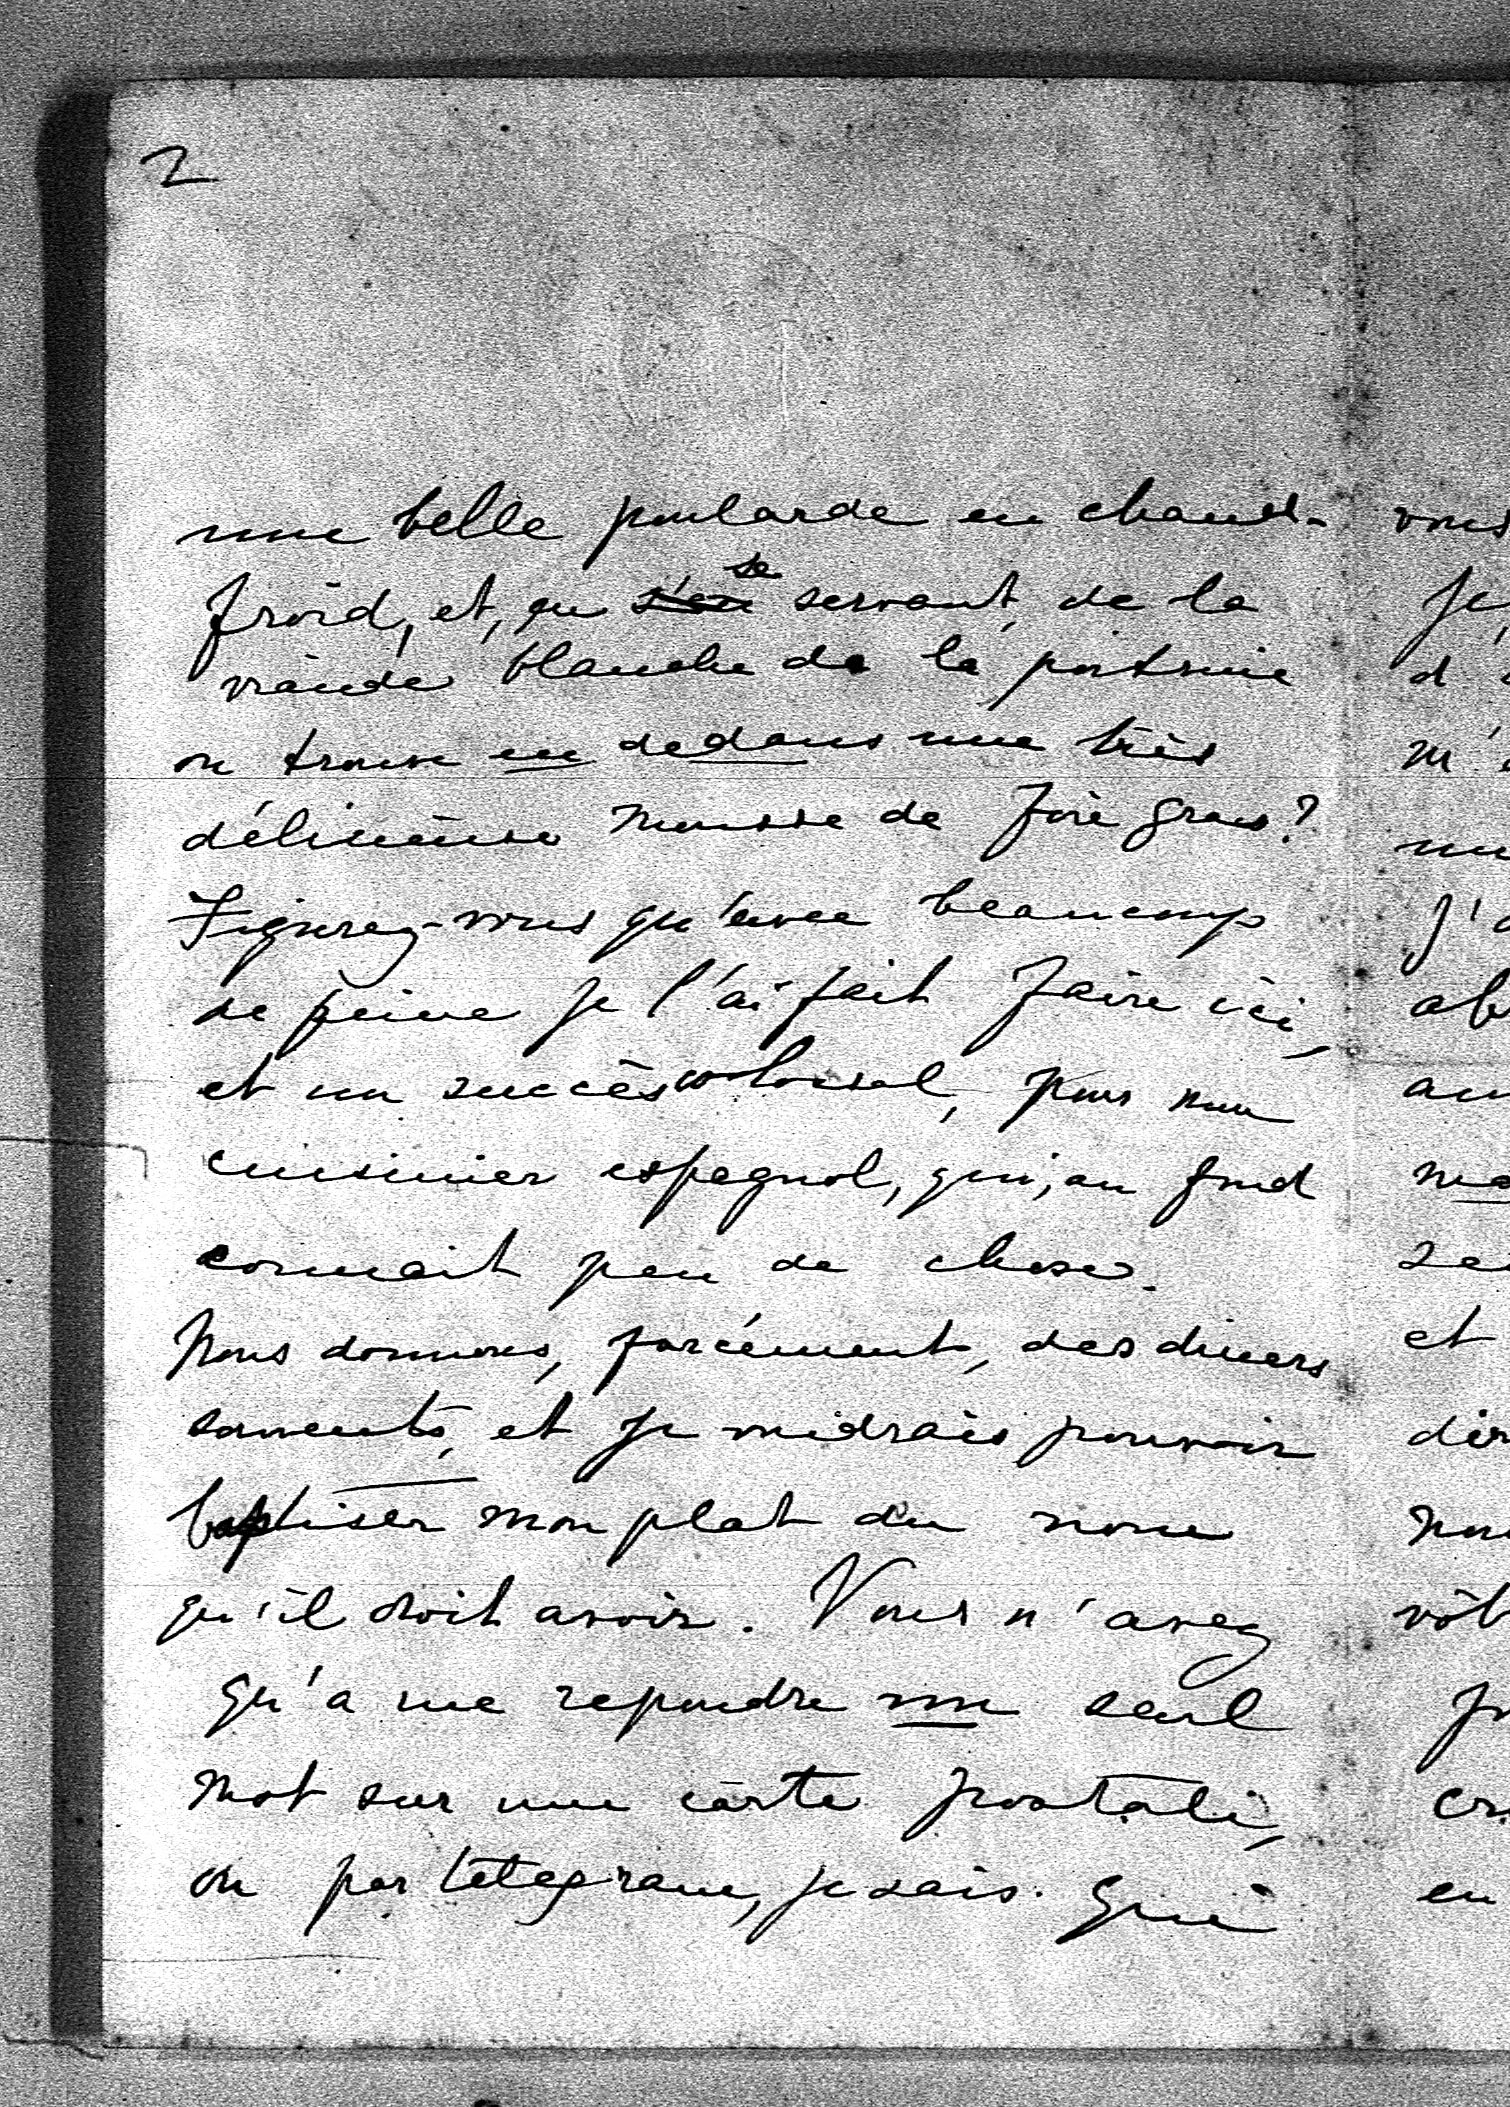 2
une belle poularde en chaud-
froid, et, en se servant de la
viande blanche de la poitrine
on trouve en dedans une très
délicieuse mousse de foie gras?
Figurez-vous qu'avec beaucoup
de peine je l'ai fait faire ici,
et un succès colossal, pour mon
cuisinier espagnol, qui, au fond
connait peu de chose.
Nous donnons, forcément, des diners
souvents, et je voudrais pouvoir
baptiser mon plat du nom
qu'il doit avoir. Vous n'avez
qu'a me repondre un seul
mot sur une carte postale,
ou par telegrame, je sais. Qui
vous
je
d
m'
J'
ab
et
en